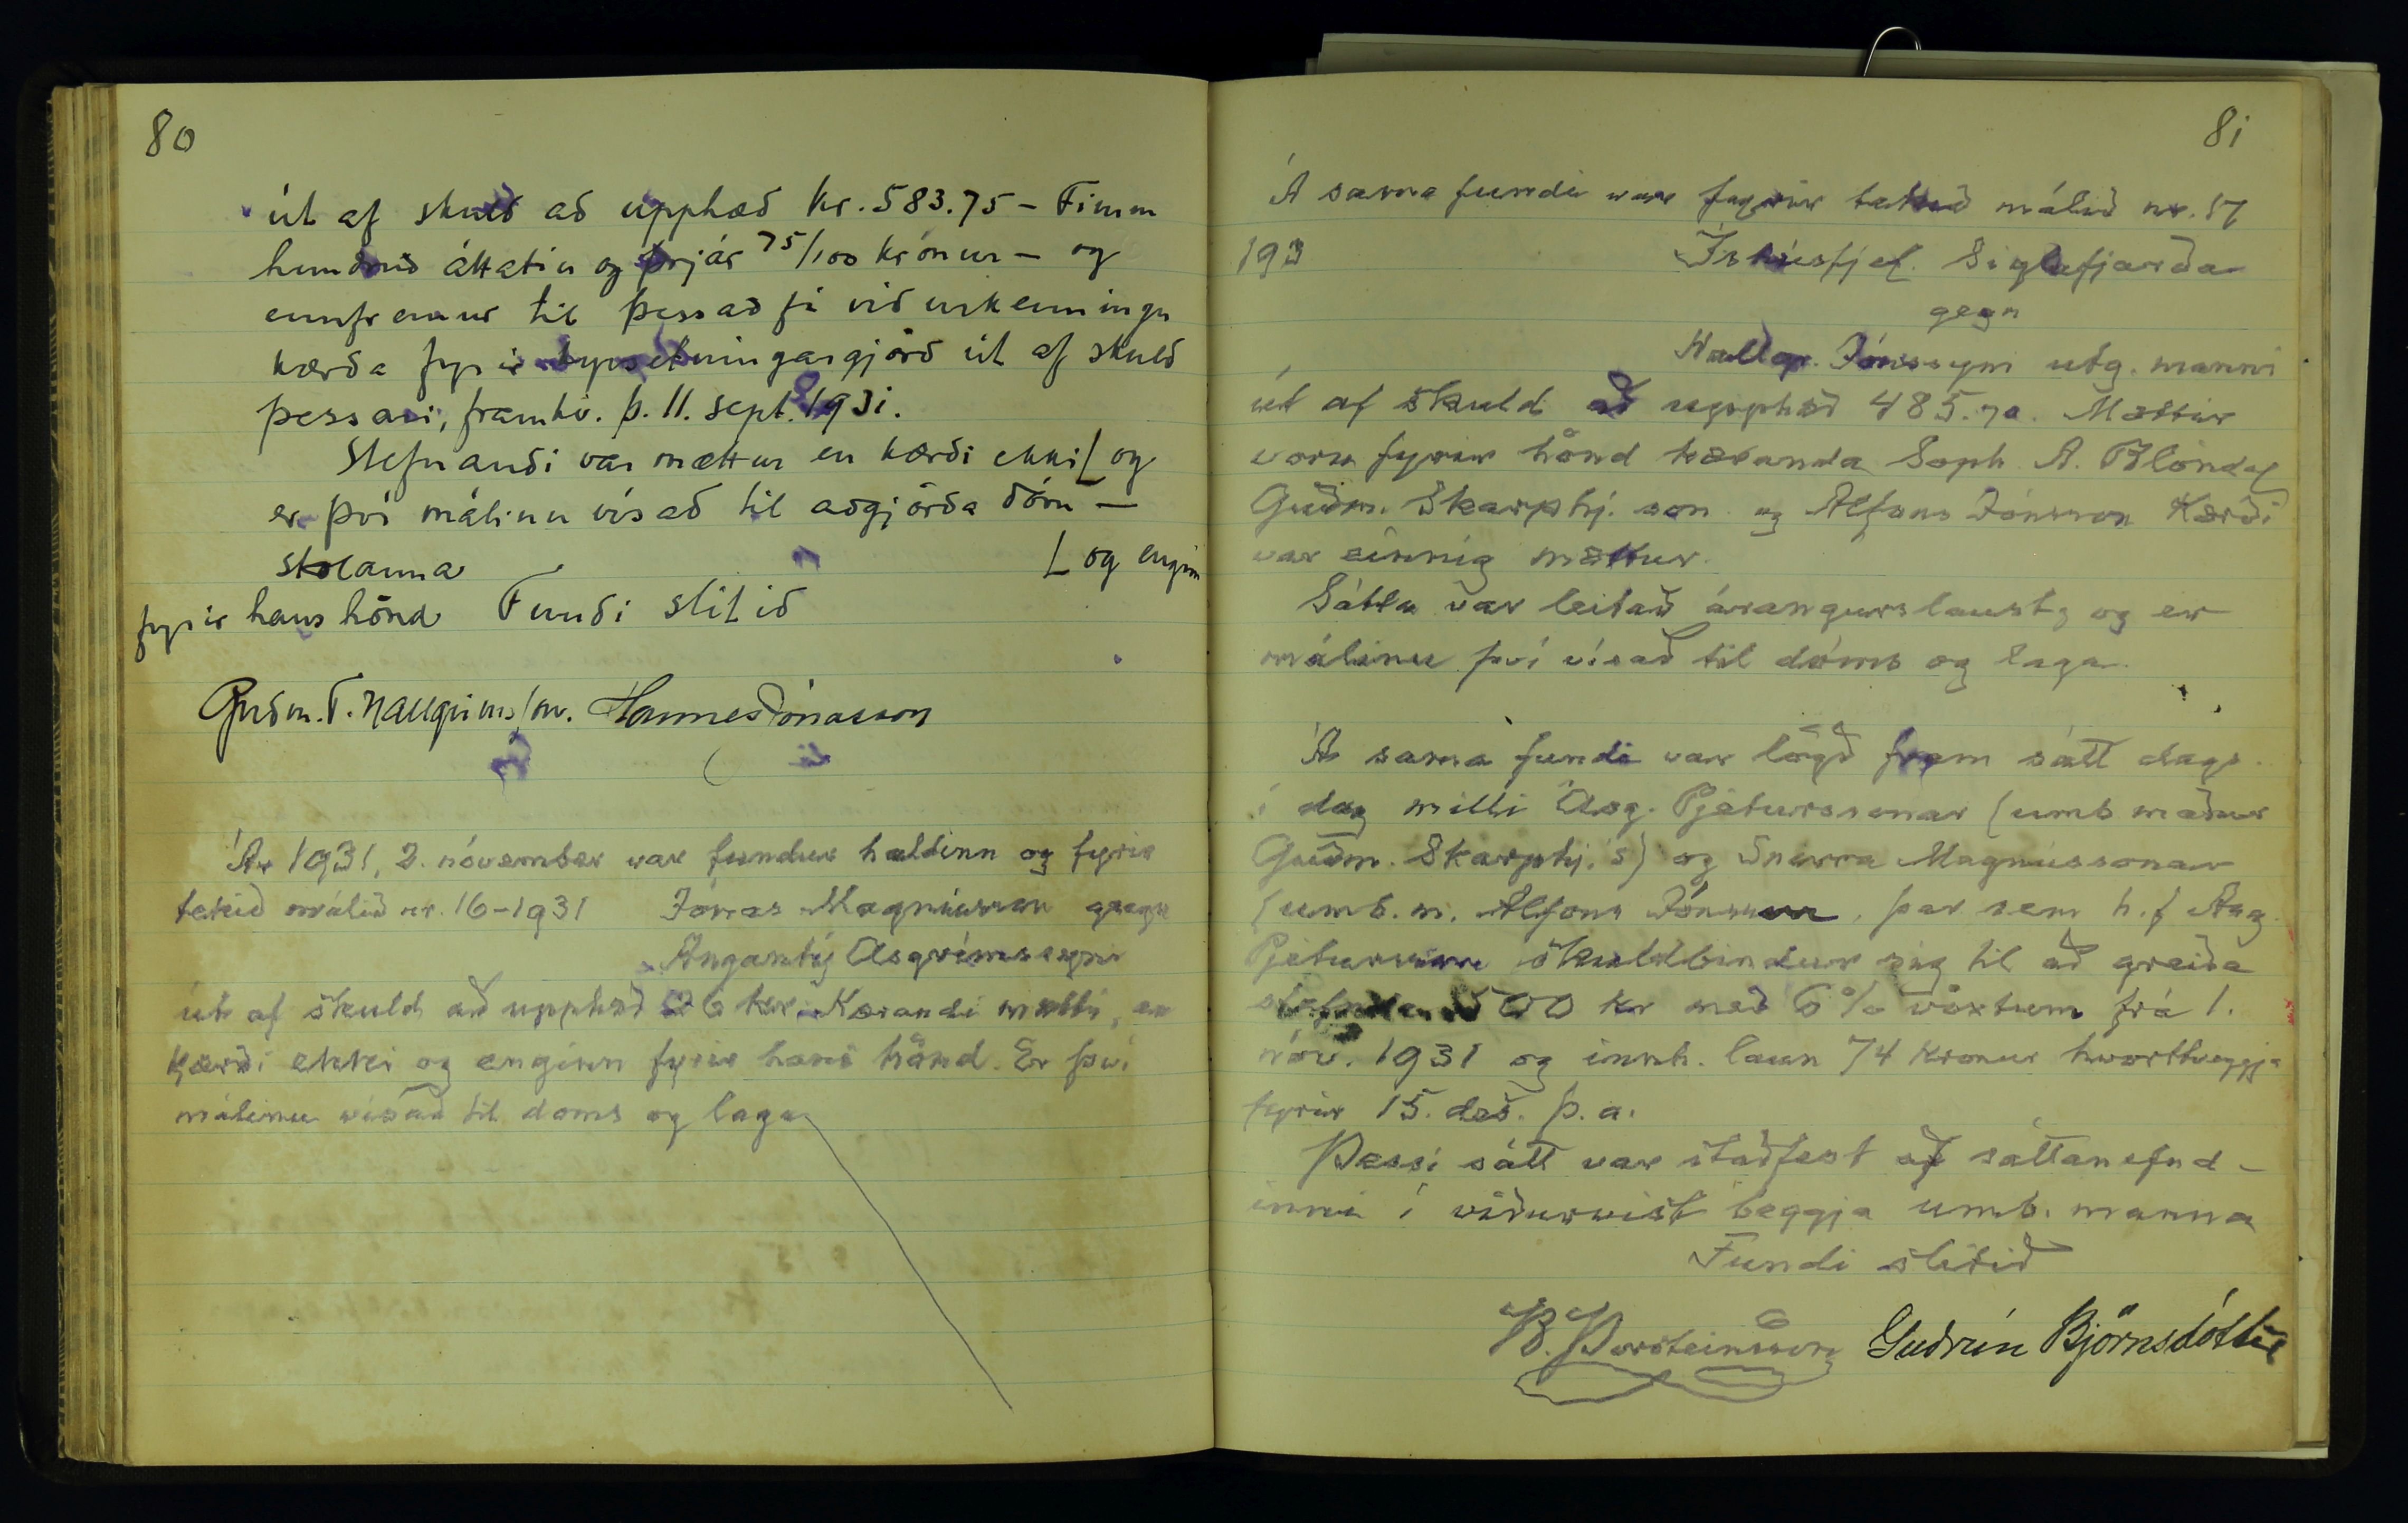 80
út af skuld að upphæð kr. 583.75 - Fimm
hundruð áttatíu og þrjár 75/100 krónur - og
ennfremur til þess að fá viðurkenningu
kærða fyrir kyrsetningargjörð út af skuld
þessari, framkv. þ. 11. sept. 1931.
Stefnandi var mættur en kærði ekki [ og
er því málinu vísað til aðgjörða dóm-
stolanna [ og engin
fyrir hans hönd Fundi slitið
Guðm. T. Hallgrímsson. Hannes Jónasson
Ár 1931, 2. nóvember var fundur haldinn og fyrir
tekið málið nr. 16-1931 Jónas Magnússon gegn
Angantý Ásgrímssyni
út af skuld að upphæð 6 kr. Kærandi mætti, en
kærði ekki og enginn fyrir hans hönd. Er því
málinu vísað til doms og laga
81
Á sama fundi var fyrir tekið málið nr. 17
193 Íshúsfjel. Siglufjarðar
gegn
Hallgr. Jónssyni utg. manni
út af skuld að upphæð 485.70. Mættir
voru fyrir hönd kæranda Soph. A. Blöndal
Guðm. Skarphj. son og Alfons Jónsson Kærði
var einnig mættur.
Sátta var leitað árangurslaust, og er
málinu því vísað til dóms og laga.
Á sama fundi var lögð fram sátt dags.
í dag milli Ásg. Pjeturssonar (umb maður
Guðm. Skarphj.'s) og Snorra Magnússonar
(umb. m. Alfons Jónsson, þar sem h.f Ásg.
Pjetursson skuldbindur sig til að greiða
stefnda 500 kr með 6% vöxtum frá 1.
nóv. 1931 og innh. laun 74 krónur hvorttveggja
fyrir 15. des. þ. a.
Þessi sátt var staðfest af sáttanefnd-
inni í viðurvist beggja umb. manna
Fundi slitið
B. Þorsteinsson Guðrún Björnsdóttir